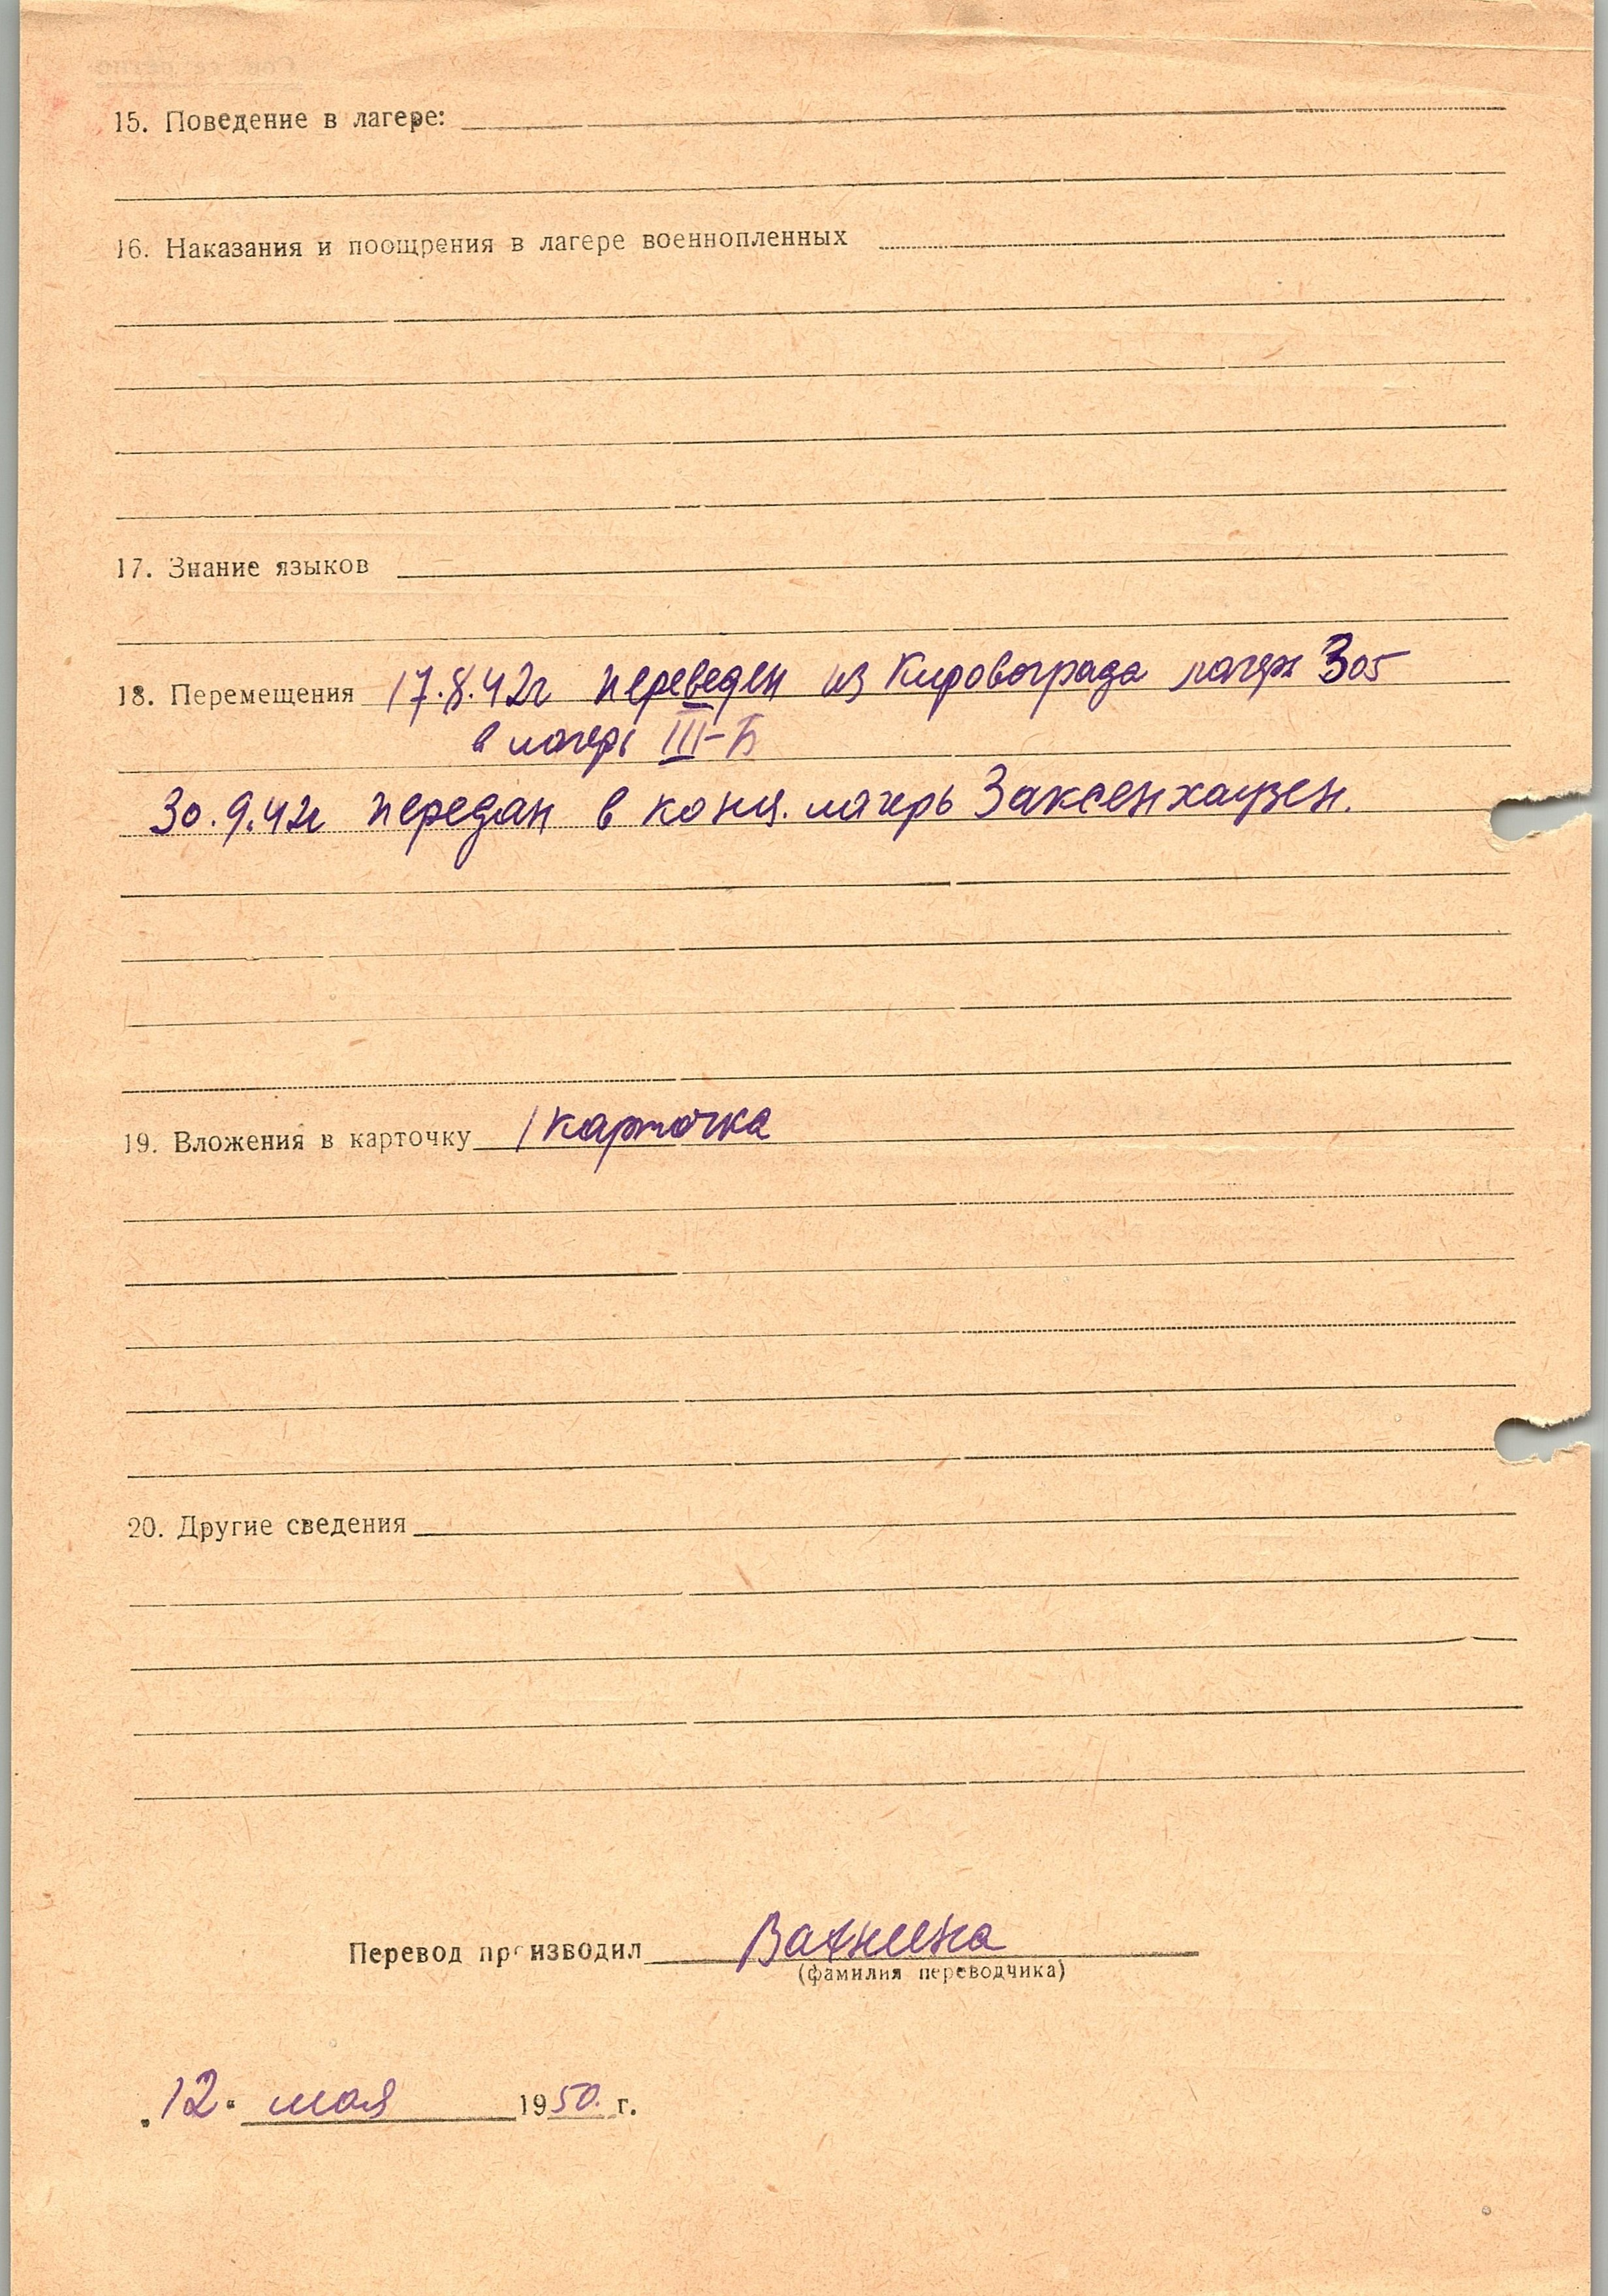 15. Поведение в лагере:
16. Наказания и поощрения в лагере военнопленных
17. Знание языков
18. Перемещения 17.8.42г переведен из Кировограда лагерь 305
в лагерь III-Б
30.9.42г передан в конц. лагерь Заксенхаузен.
19. Вложения в карточку 1 карточка
20. Другие сведения
Перевод производил
(фамилия переводчика)
„12" мая 1950 г.